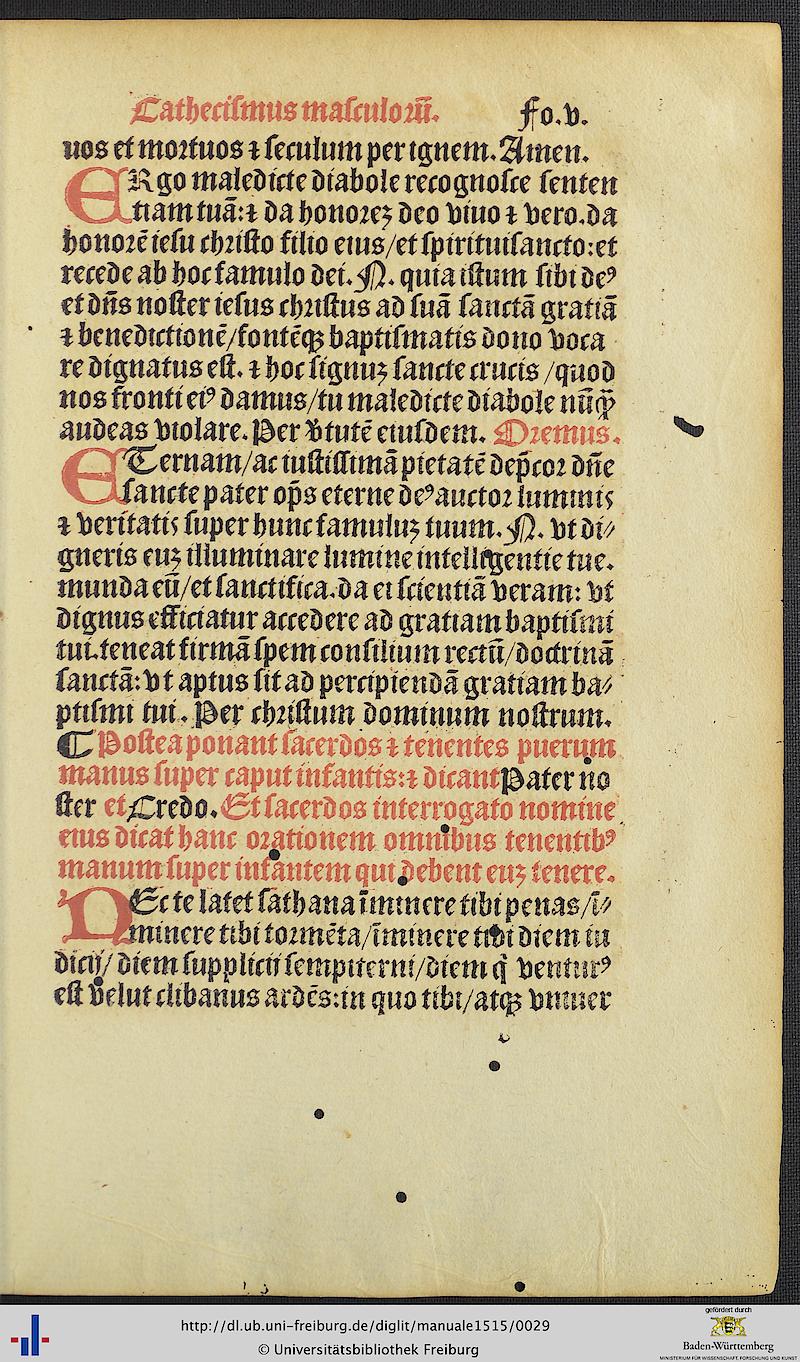 Cathecismus masculoꝝ̃. Fo.v.
uos et mortuos ⁊ seculum per ignem. Amen.
ERgo maledicte diabole recognosce senten
tiam tuã:⁊ da honorez deo viuo ⁊ vero.da
honorẽ iesu christo filio eius/et spirituisancto:et
recede ab hoc famulo dei. N. quia istum sibi deꝰ
et dñs noster iesus christus ad suã sanctã gratiã
⁊ benedictionẽ/fontẽqꝫ baptismatis dono voca
re dignatus est. ⁊ hoc signuz sancte crucis /quod
nos fronti eiꝰ damus/tu maledicte diabole nũꝙ̃
audeas violare. Per v̾tutẽ eiusdem. Oremus.
ETernam/ac iustissimã pietatẽ dep̃cor dñe
sancte pater op̃s eterne deꝰ auctor luminis
⁊ veritatis super hunc famuluz tuum. N. vt di⸗
gneris euz illuminare lumine intelligentie tue.
munda eũ/et sanctifica.da ei scientiã veram: vt
dignus efficiatur accedere ad gratiam baptismi
tui.teneat firmã spem consilium rectũ/doctrinã
sanctã:vt aptus sit ad percipiendã gratiam ba⸗
ptismi tui. Per christum dominum nostrum.
¶ Postea ponant sacerdos ⁊ tenentes puerum
manus super caput infantis:⁊ dicant Pater no
ster et Credo. Et sacerdos interrogato nomine
eius dicat hanc orationem omnibus tenentibꝰ
manum super infantem qui debent euz tenere.
NEc te latet sathana ĩminere tibi penas/ĩ⸗
minere tibi tormẽta/ĩminere tibi diem iu
dicij/ diem supplicii sempiterni/diem q̃ venturꝰ
est velut clibanus ardẽs:in quo tibi/atqꝫ vniuer
http://dl.ub.uni-freiburg.de/diglit/manuale1515/0029
© Universitätsbibliothek Freiburg
gefördert durch
Baden-Württemberg
MINISTERIUM FÜR WISSENSCHAFT, FORSCHUNG UND KUNST